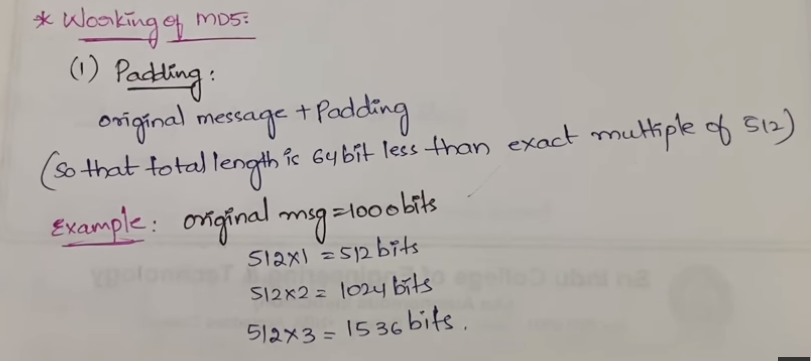 * Working of MD5:
(1) Padding:
original message + Padding
(so that total length is 64 bit less than exact multiple of 512)
Example: original msg = 1000 bits
512x1 = 512 bits
512x2 = 1024 bits
512x3 = 1536 bits.